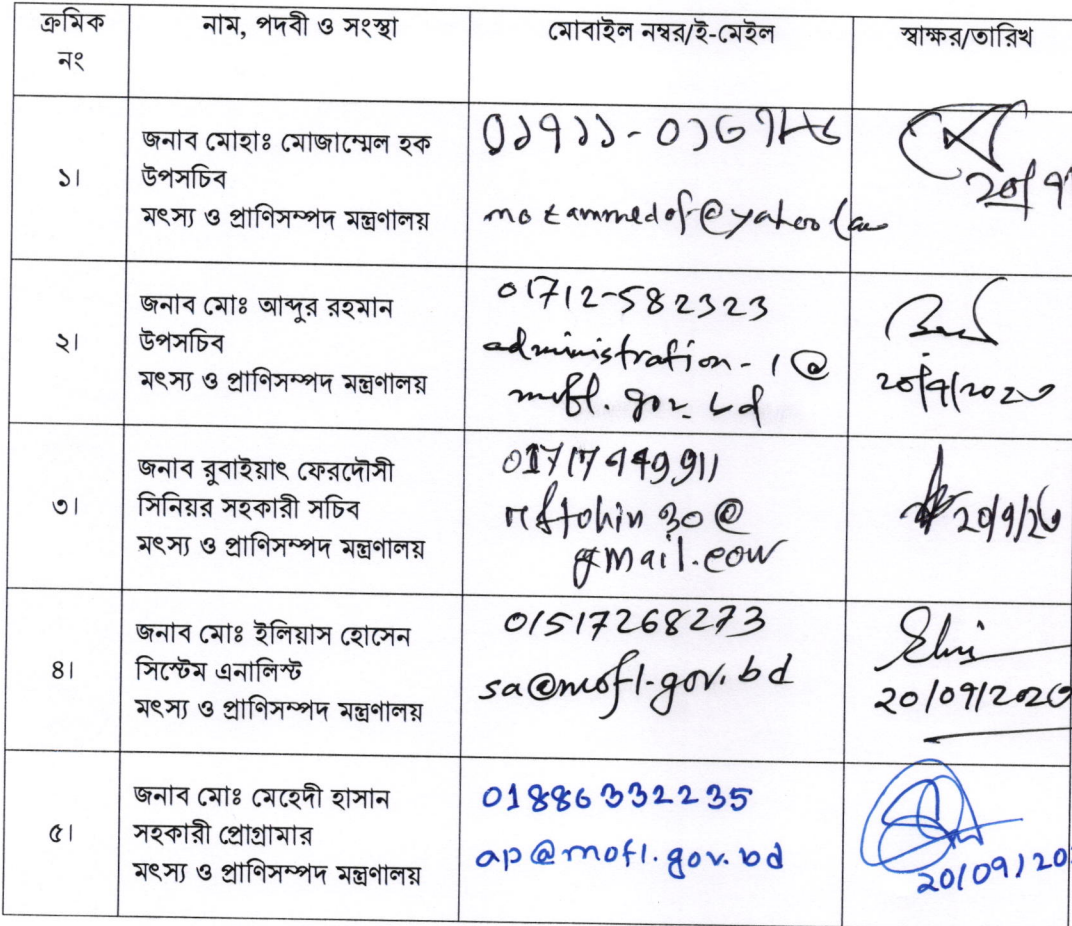 ক্রমিক নং
নাম, পদবী ও সংস্থা
মোবাইল নম্বর/ই-মেইল
স্বাক্ষর/তারিখ
১।
জনাব মোহাঃ মোজাম্মেল হক
উপসচিব
মৎস্য ও প্রাণিসম্পদ মন্ত্রণালয়
২।
জনাব মোঃ আব্দুর রহমান
উপসচিব
মৎস্য ও প্রাণিসম্পদ মন্ত্রণালয়
01712-582323
administration-1@
mofl.gov.bd
20/9/2020
৩।
জনাব রুবাইয়াৎ ফেরদৌসী
সিনিয়র সহকারী সচিব
মৎস্য ও প্রাণিসম্পদ মন্ত্রণালয়
01717449911
gmail.com
20/9/20
৪।
জনাব মোঃ ইলিয়াস হোসেন
সিস্টেম এনালিস্ট
মৎস্য ও প্রাণিসম্পদ মন্ত্রণালয়
01517268273
sa@mofl.gov.bd
20/09/2020
৫।
জনাব মোঃ মেহেদী হাসান
সহকারী প্রোগ্রামার
মৎস্য ও প্রাণিসম্পদ মন্ত্রণালয়
01886332235
ap@mofl.gov.bd
20/09/20